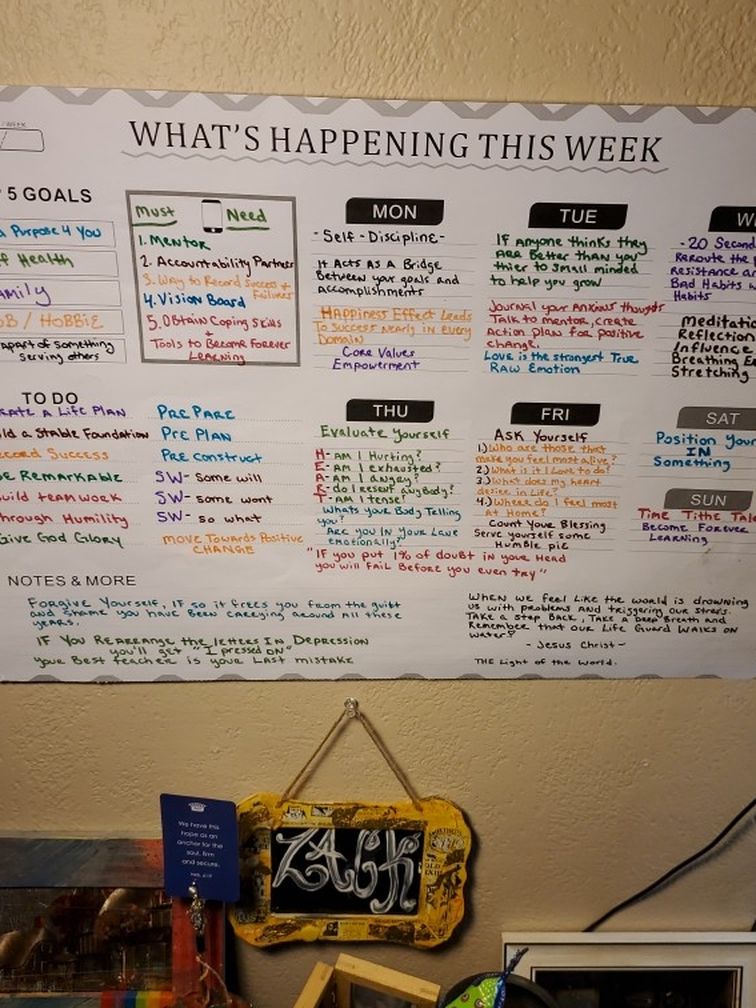 WEEK
WHAT'S HAPPENING THIS WEEK
5 GOALS
Purpose 4 You
Health
amily
OB / HOBBIE
apart of something
serving others
Must Need
1. Mentor
2. Accountability Partners
3. Way to Record Success +
Failures
4. Vision Board
5. Obtain Coping Skills
+
Tools to Become Forever
Learning
MON
- Self - Discipline -
It Acts As A Bridge
Between your goals and
accomplishments
Happiness Effect Leads
To success nearly in every
Domain
Core Values
Empowerment
TUE
IF Anyone thinks they
ARE Better than you
thier to small minded
to help you grow
Journal your Anxious thoughts
Talk to mentor, create
Action plan for positive
change.
Love is the strongest True
RAW Emotion
W
- 20 Second
Reroute the P
Resistance an
Bad Habits w
Habits
Meditatio
Reflection
Influence
Breathing Ex
Stretching
TO DO
eate A Life Plan
ld a Stable Foundation
ecord Success
Be Remarkable
uild teamwork
hrough Humility
Give God Glory
PrePare
Pre Plan
Pre construct
SW- some will
SW- some wont
SW- so what
Move Towards Positive
CHANGE
THU
Evaluate Yourself
H- Am I Hurting?
E- Am I exhausted?
A- Am I angry?
R- do I resent anyBody?
T- Am I tense?
Whats your Body Telling
you?
Are you In Your Lane
emotionally?
"If you put 1% of doubt in your Head
you will FAIL Before you even try"
FRI
Ask Yourself
1) Who are those that
make you feel most alive?
2.) What is it I Love to do?
3.) What does my heart
desire in Life?
4.) Where do I feel most
at Home?
Count your Blessing
Serve yourself some
Humble pie
SAT
Position Your
IN
Something
SUN
Time Tithe Tale
Become Forever
Learning
NOTES & MORE
Forgive Yourself, IF so it frees you from the guilt
and shame you have been carrying around All these
years.
IF You Rearrange the letters In Depression
you'll get "I pressed on"
your Best teacher is your Last mistake
When we feel Like the world is drowning
us with problems And triggering our stress.
Take a step Back, Take a Deep Breath and
Remember that our Life Guard Walks on
water!
- Jesus Christ -
THE Light of the World.
We have this
hope as an
anchor for the
soul, firm
and secure.
ZACK